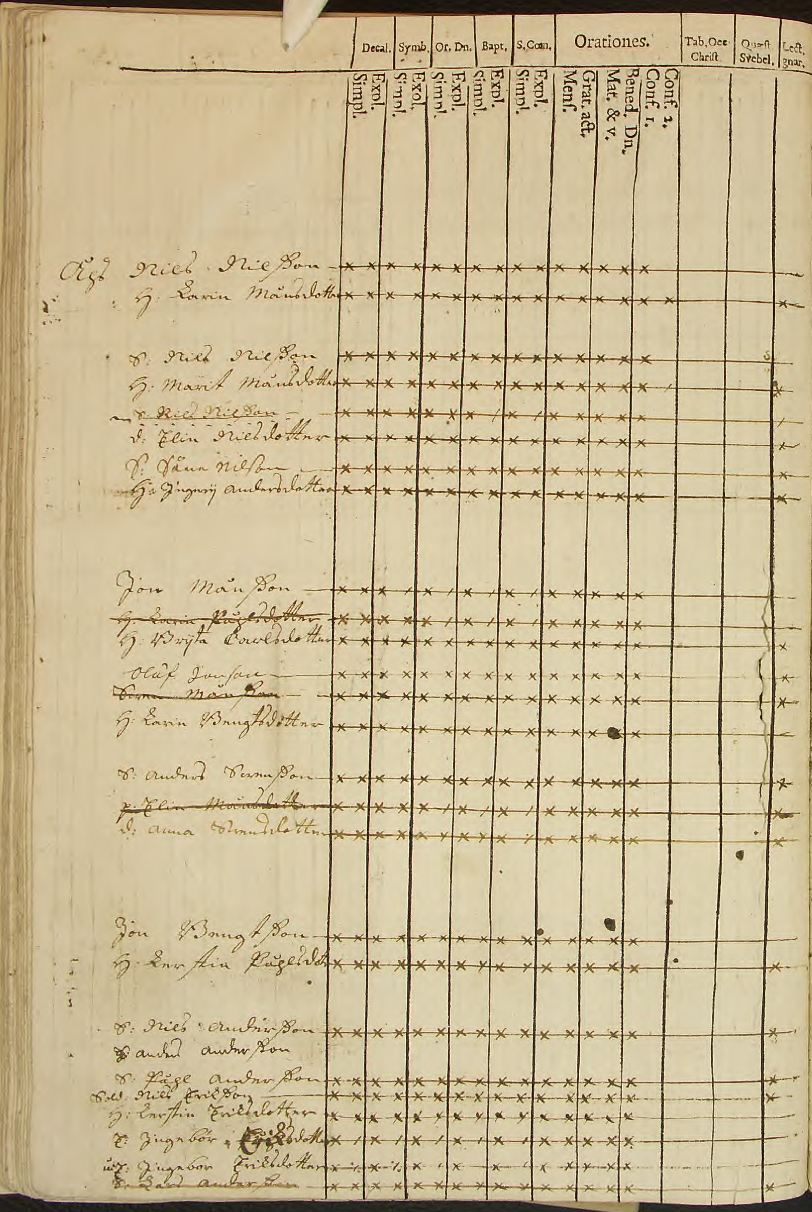 Decal. Symb. Or. Dn. Bapt. S. Com. Orationes. Tab. Oec Christ. Quæst Svebel. Lect. gnar.
Simpl. Expl. Simpl. Expl. Simpl. Expl. Simpl. Expl. Simpl. Expl. Mens. Grat. act. Mat. & v. Bened. Dn. Conf. 1. Conf. 2.
Nils Nilsson
H: Karin Månsdotter
S: Nils Nilsson
H: Marit Månsdotter
S: Nils Nilsson
d: Elin Nilsdotter
S: Nilsson
H: Andersdotter
Jon Månsson
H: Karin Pågelsdotter
H: Bryta Carlsdotter
Oluf Jonson
Månsson
H: Karin Bengtsdotter
S: Anders Swensson
Elin Månsdotter
d: Anna Swensdotter
Jon Bengtsson
H: Kerstin
S: Nils Andersson
Anders Andersson
S: Andersson
Sold. Nils Erikson
H: Kerstin Eriksdotter
Ingebor Eriksdotter
Ingebor Eriksdotter
Lars Andersson